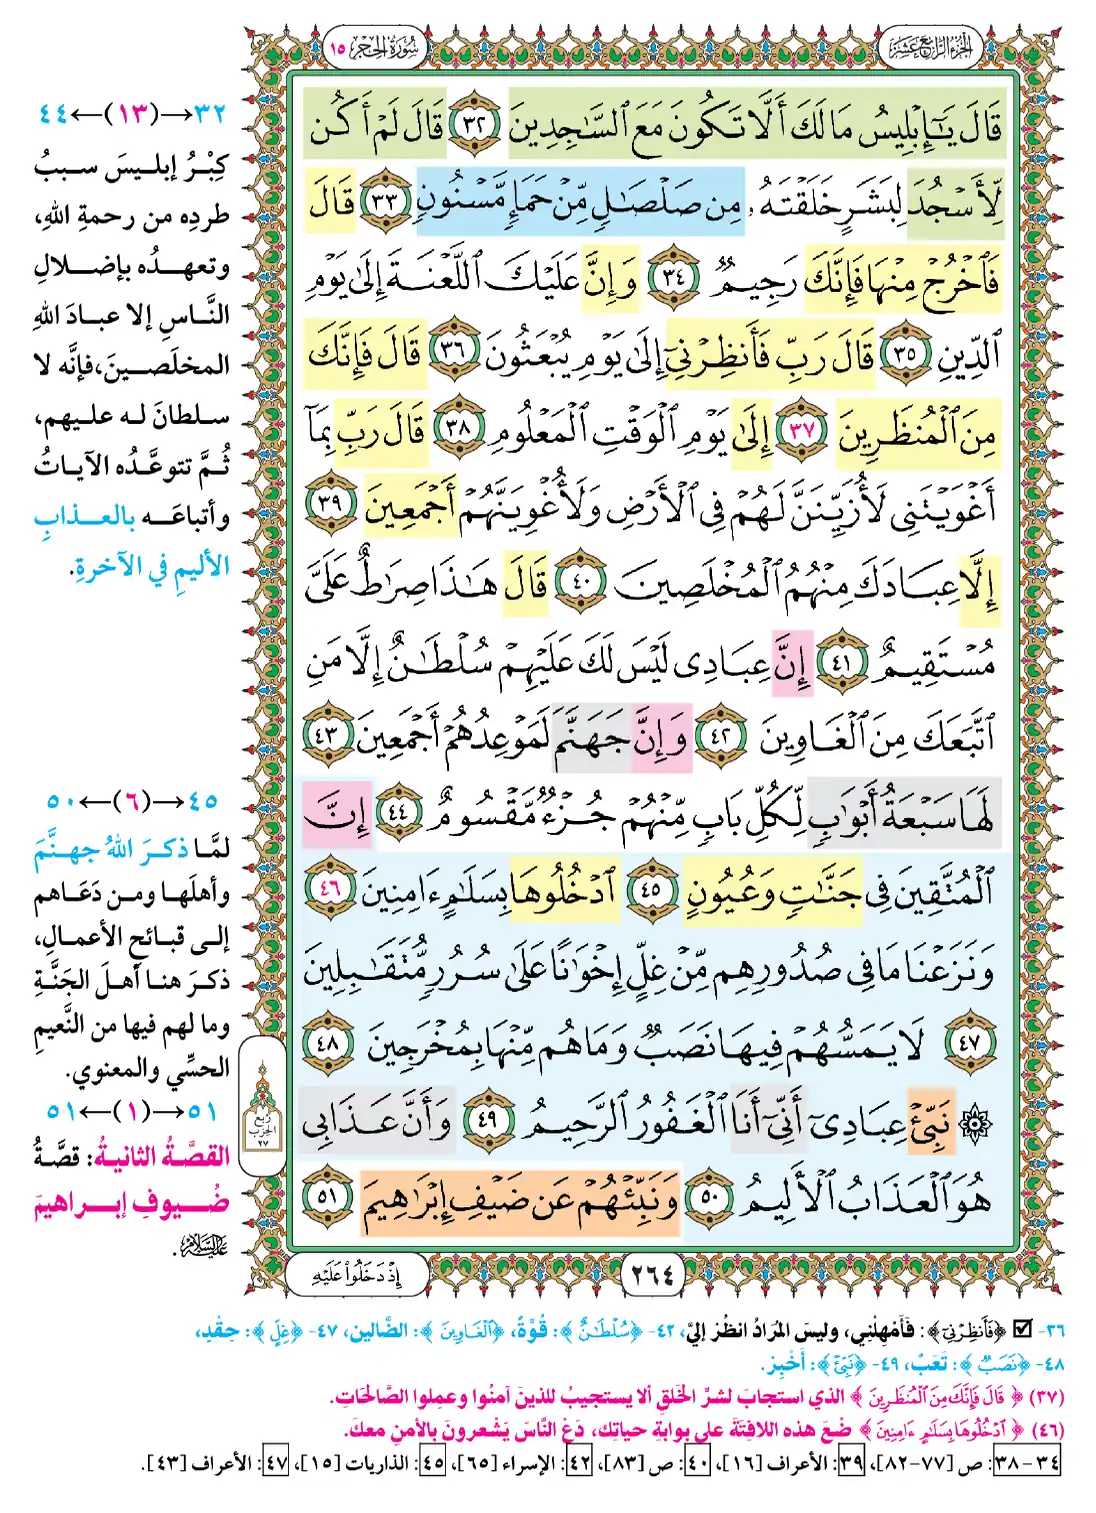 الجزء الرابع عشر
سورة الحجر ١٥
قَالَ يَٰٓإِبْلِيسُ مَا لَكَ أَلَّا تَكُونَ مَعَ ٱلسَّٰجِدِينَ ٣٢ قَالَ لَمْ أَكُن
لِّأَسْجُدَ لِبَشَرٍ خَلَقْتَهُۥ مِن صَلْصَٰلٍ مِّنْ حَمَإٍ مَّسْنُونٍ ٣٣ قَالَ
فَٱخْرُجْ مِنْهَا فَإِنَّكَ رَجِيمٌ ٣٤ وَإِنَّ عَلَيْكَ ٱللَّعْنَةَ إِلَىٰ يَوْمِ
ٱلدِّينِ ٣٥ قَالَ رَبِّ فَأَنظِرْنِىٓ إِلَىٰ يَوْمِ يُبْعَثُونَ ٣٦ قَالَ فَإِنَّكَ
مِنَ ٱلْمُنظَرِينَ ٣٧ إِلَىٰ يَوْمِ ٱلْوَقْتِ ٱلْمَعْلُومِ ٣٨ قَالَ رَبِّ بِمَآ
أَغْوَيْتَنِى لَأُزَيِّنَنَّ لَهُمْ فِى ٱلْأَرْضِ وَلَأُغْوِيَنَّهُمْ أَجْمَعِينَ ٣٩
إِلَّا عِبَادَكَ مِنْهُمُ ٱلْمُخْلَصِينَ ٤٠ قَالَ هَٰذَا صِرَٰطٌ عَلَىَّ
مُسْتَقِيمٌ ٤١ إِنَّ عِبَادِى لَيْسَ لَكَ عَلَيْهِمْ سُلْطَٰنٌ إِلَّا مَنِ
ٱتَّبَعَكَ مِنَ ٱلْغَاوِينَ ٤٢ وَإِنَّ جَهَنَّمَ لَمَوْعِدُهُمْ أَجْمَعِينَ ٤٣
لَهَا سَبْعَةُ أَبْوَٰبٍ لِّكُلِّ بَابٍ مِّنْهُمْ جُزْءٌ مَّقْسُومٌ ٤٤ إِنَّ
ٱلْمُتَّقِينَ فِى جَنَّٰتٍ وَعُيُونٍ ٤٥ ٱدْخُلُوهَا بِسَلَٰمٍ ءَامِنِينَ ٤٦
وَنَزَعْنَا مَا فِى صُدُورِهِم مِّنْ غِلٍّ إِخْوَٰنًا عَلَىٰ سُرُرٍ مُّتَقَٰبِلِينَ
٤٧ لَا يَمَسُّهُمْ فِيهَا نَصَبٌ وَمَا هُم مِّنْهَا بِمُخْرَجِينَ ٤٨
۞ نَبِّئْ عِبَادِىٓ أَنِّىٓ أَنَا ٱلْغَفُورُ ٱلرَّحِيمُ ٤٩ وَأَنَّ عَذَابِى
هُوَ ٱلْعَذَابُ ٱلْأَلِيمُ ٥٠ وَنَبِّئْهُمْ عَن ضَيْفِ إِبْرَٰهِيمَ ٥١
٢٦٤
إِذْ دَخَلُوا۟ عَلَيْهِ
٣٢→(١٣)←٤٤
كِبْرُ إبليسَ سببُ
طردِه من رحمةِ اللهِ،
وتعهدُه بإضلالِ
النَّاسِ إلا عبادَ اللهِ
المخلَصينَ، فإنَّه لا
سلطانَ له عليهم،
ثُمَّ تتوعَّدُه الآياتُ
وأتباعَه بالعذابِ
الأليمِ في الآخرةِ.
٤٥→(٦)←٥٠
لمَّا ذكرَ اللهُ جهنَّمَ
وأهلَها ومن دَعَاهم
إلى قبائحِ الأعمالِ،
ذكرَ هنا أهلَ الجَنَّةِ
وما لهم فيها من النَّعيمِ
الحسِّي والمعنوي.
٥١→(١)←٥١
القصَّةُ الثانيةُ: قصَّةُ
ضُيوفِ إبراهيمَ
عليه السلام.
ربع
الحزب
٢٧
٣٦- ☑ ﴿فَأَنظِرْنِىٓ﴾: فَأَمْهِلْنِي، وليسَ المرَادُ انظُرْ إليَّ، ٤٢- ﴿سُلْطَٰنٌ﴾: قُوَّةٌ، ﴿ٱلْغَاوِينَ﴾: الضَّالين، ٤٧- ﴿غِلٍّ﴾: حِقْدٍ،
٤٨- ﴿نَصَبٌ﴾: تَعَبٌ، ٤٩- ﴿نَبِّئْ﴾: أَخْبِرْ.
(٣٧) ﴿قَالَ فَإِنَّكَ مِنَ ٱلْمُنظَرِينَ﴾ الذي استجابَ لشرِّ الخَلقِ ألا يستجيبُ للذينَ آمنُوا وعمِلوا الصَّالحَاتِ.
(٤٦) ﴿ٱدْخُلُوهَا بِسَلَٰمٍ ءَامِنِينَ﴾ ضَعْ هذه اللافِتَةَ على بوابةِ حياتِك، دَعْ النَّاسَ يَشْعرونَ بالأمنِ معكَ.
٣٤-٣٨: ص [٧٧-٨٢]، ٣٩: الأعراف [١٦]، ٤٠: ص [٨٣]، ٤٢: الإسراء [٦٥]، ٤٥: الذاريات [١٥]، ٤٧: الأعراف [٤٣].